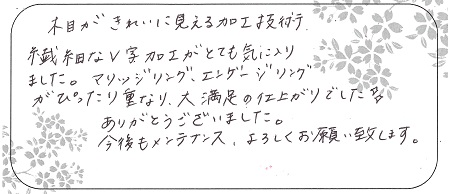 木目がきれいに見える加工技術で
繊細なV字加工がとても気に入り
ました。マリッジリング、エンゲージリング
がぴったり重なり、大満足の仕上がりでした
ありがとうございました。
今後もメンテナンス、よろしくお願い致します。